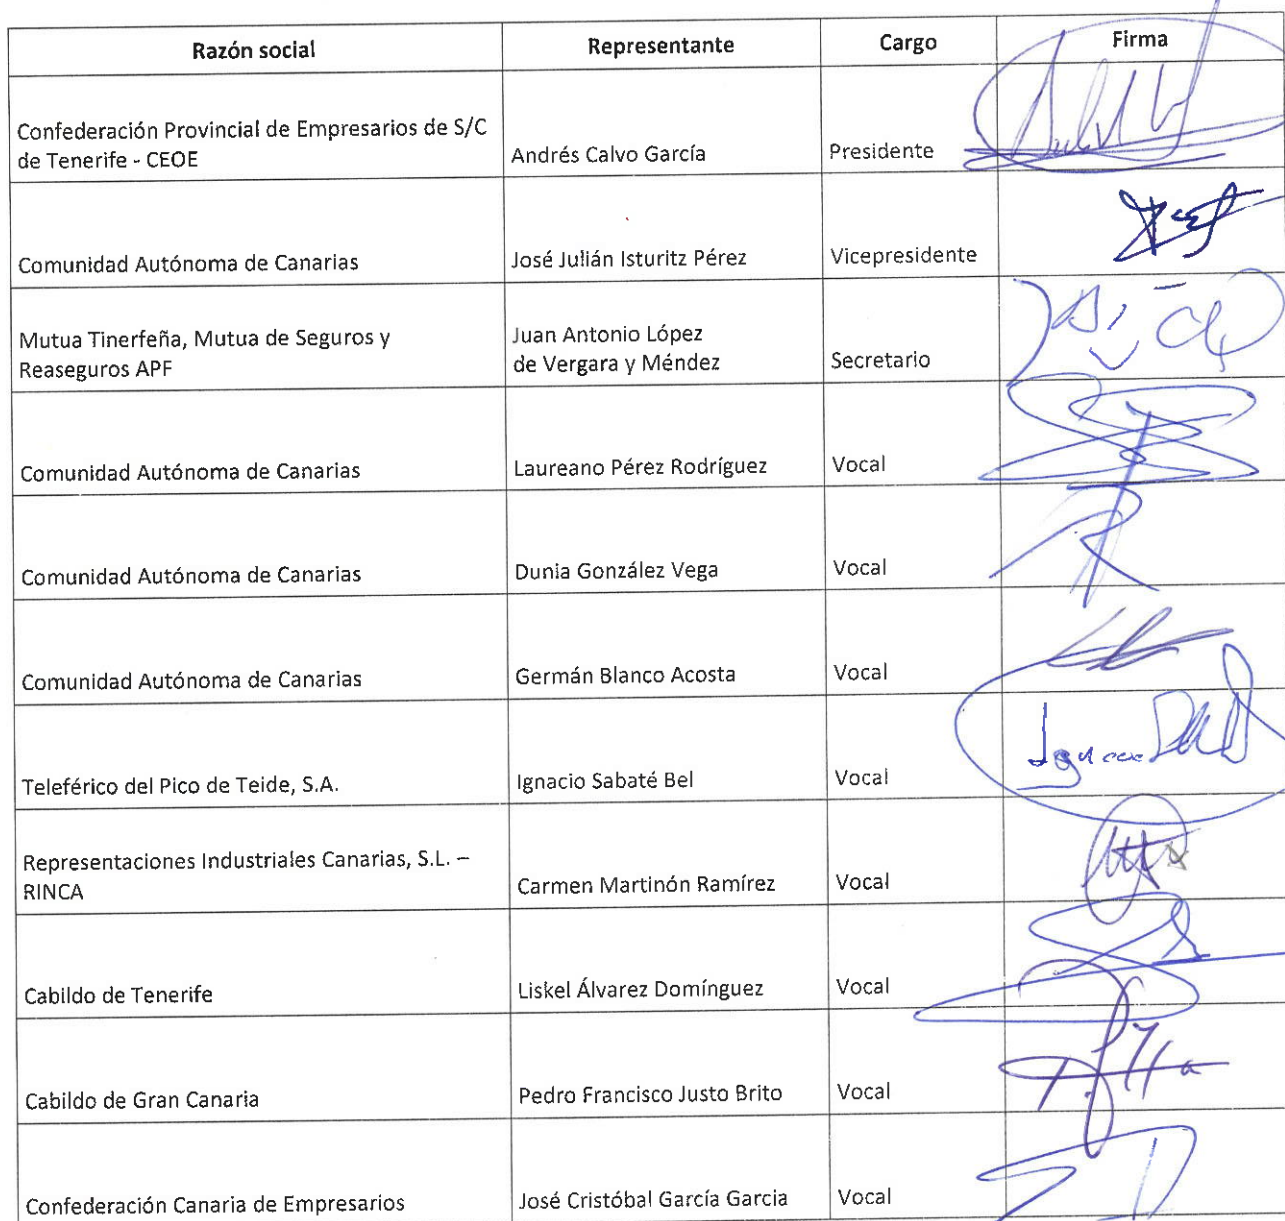 Razón social Representante Cargo Firma
Confederación Provincial de Empresarios de S/C
de Tenerife - CEOE Andrés Calvo García Presidente
Comunidad Autónoma de Canarias José Julián Isturitz Pérez Vicepresidente
Mutua Tinerfeña, Mutua de Seguros y
Reaseguros APF
Juan Antonio López
de Vergara y Méndez
Secretario
Comunidad Autónoma de Canarias Laureano Pérez Rodríguez Vocal
Comunidad Autónoma de Canarias Dunia González Vega Vocal
Comunidad Autónoma de Canarias Germán Blanco Acosta Vocal
Teleférico del Pico de Teide, S.A. Ignacio Sabaté Bel Vocal
Representaciones Industriales Canarias, S.L. –
RINCA Carmen Martinón Ramírez Vocal
Cabildo de Tenerife Liskel Álvarez Domínguez Vocal
Cabildo de Gran Canaria Pedro Francisco Justo Brito Vocal
Confederación Canaria de Empresarios José Cristóbal García Garcia Vocal